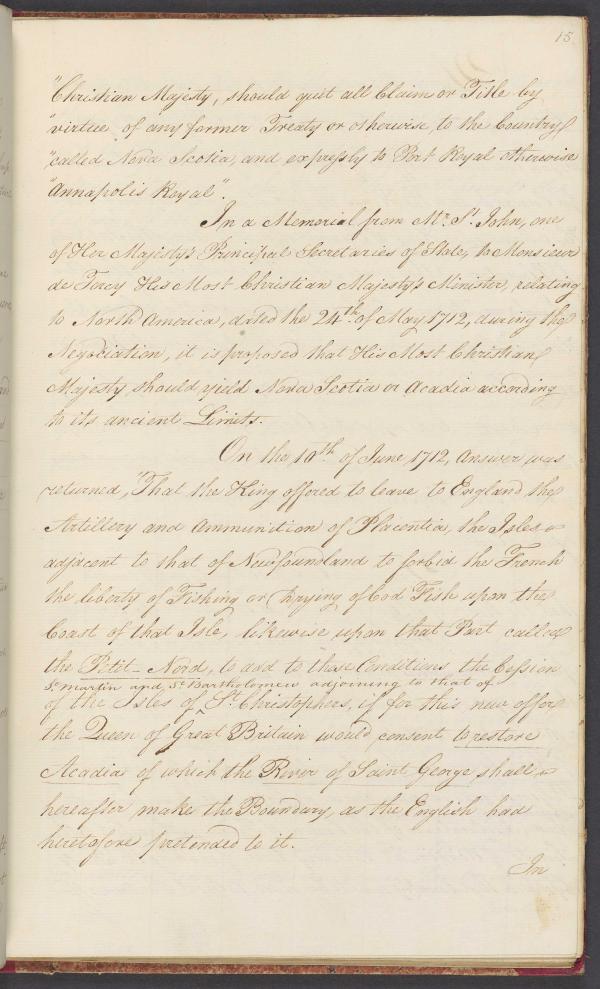 15.
"Christian Majesty, should quit all Claim or Title by
"virtue of any former Treaty or otherwise, to the Country
"called Nova Scotia, and expressly to Port Royal otherwise
"Annapolis Royal".
In a Memorial from Mr. St. John, one
of Her Majesty's Principal Secretaries of State, to Monsieur
de Torcy His Most Christian Majesty's Minister, relating
to North America, dated the 24th. of May 1712, during the
Negociation, it is proposed that His Most Christian
Majesty should yield Nova Scotia or Acadia according
to its ancient Limits.
On the 10th. of June 1712, Answer was
returned, "That the King offered to leave to England the
Artillery and Ammunition of Placentia, the Isles
adjacent to that of Newfoundland to forbid the French
the liberty of Fishing or drying of Cod Fish upon the
Coast of that Isle, likewise upon that Part called
the Petit-Nord, to add to these Conditions the Cession
St. Martin and St. Bartholomew adjoining to that of
of the Isles of ^ St. Christophers, if for this new offer
the Queen of Great Britain would consent to restore
Acadia of which the River of Saint George shall
hereafter make the Boundary, as the English had
heretofore pretended to it.
In